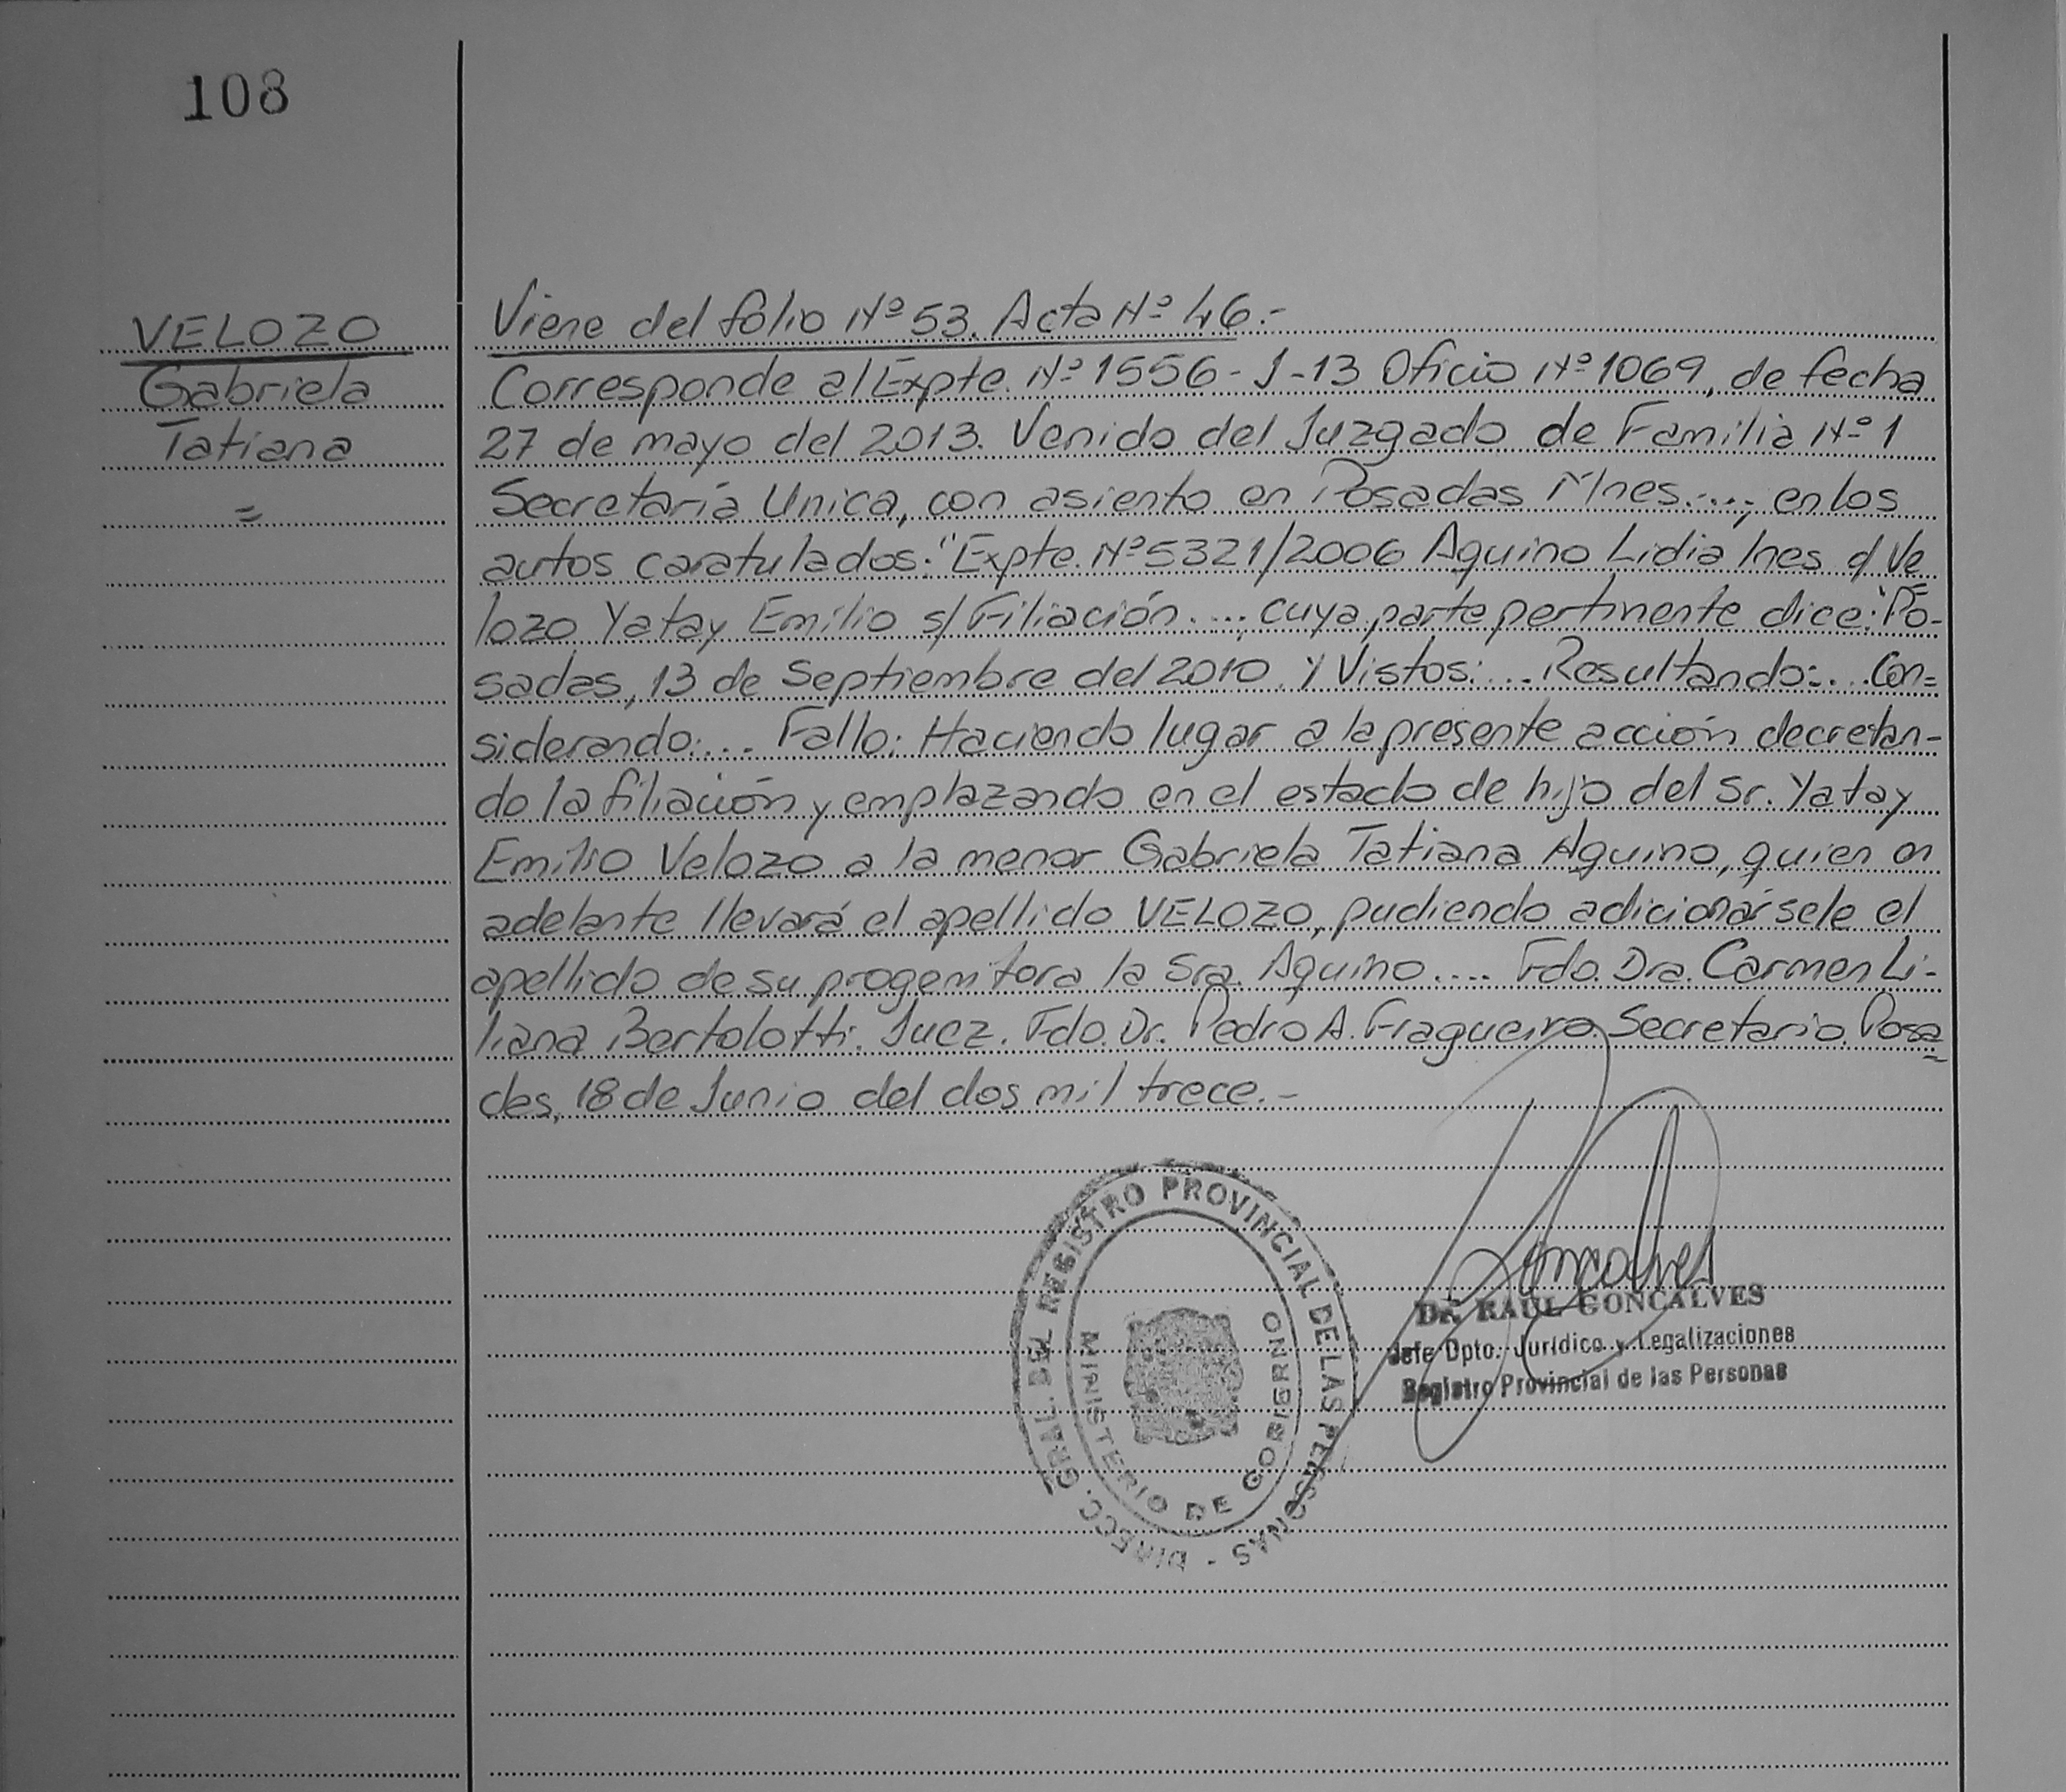 108
VELOZO
Gabriela
Tatiana
=
Viene del folio Nº 53. Acta Nº 46.-
Corresponde al Expte. Nº 1556-J-13 Oficio Nº 1069, de fecha
27 de mayo del 2013. Venido del Juzgado de Familia Nº 1
Secretaría Unica, con asiento en Posadas Mnes...., en los
autos caratulados: "Expte. Nº 5321/2006 Aquino Lidia Ines c/ Ve
lozo Yatay Emilio s/ Filiación...., cuya parte pertinente dice: "Po-
sadas, 13 de Septiembre del 2010. Y Vistos:... Resultando:... Con=
siderando:... Fallo: Haciendo lugar a la presente acción decretan-
do la filiación y emplazando en el estado de hijo del Sr. Yatay
Emilio Velozo a la menor Gabriela Tatiana Aquino, quien en
adelante llevará el apellido VELOZO, pudiendo adicionársele el
apellido de su progenitora la Sra. Aquino.... Fdo. Dra. Carmen Li-
liana Bertolotti. Juez. Fdo. Dr. Pedro A. Fragueiro. Secretario. Posa=
das, 18 de Junio del dos mil trece.-
DIRECC. GRAL. DEL REGISTRO PROVINCIAL DE LAS PERSONAS -
MINISTERIO DE GOBIERNO
Goncalves
Dr. RAUL GONCALVES
Jefe Dpto. Jurídico y Legalizaciones
Registro Provincial de las Personas